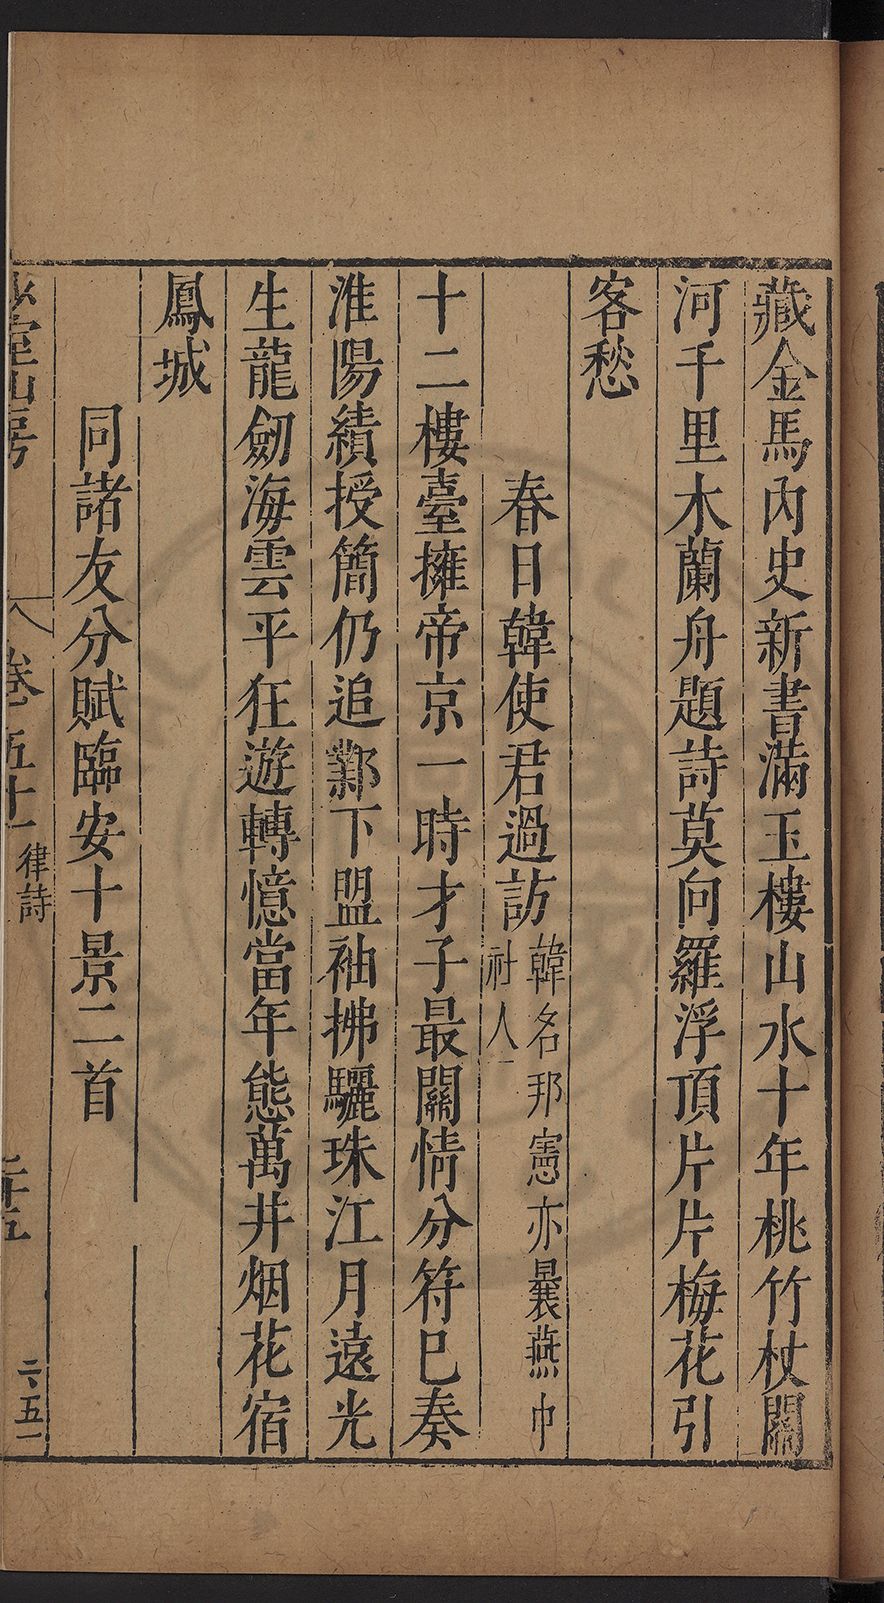 藏金馬內史新書滿玉樓山水十年桃竹杖關
河千里木蘭舟題詩莫向羅浮頂片片梅花引
客愁
春日韓使君過訪
韓名邦憲亦曩燕中
社人
十二樓臺擁帝京一時才子最關情分符已奏
淮陽績授簡仍追鄴下盟袖拂驪珠江月遠光
生龍劒海雲平狂遊轉憶當年態萬井烟花宿
鳳城
同諸友分賦臨安十景二首
室山房
卷五十一
律詩
二五一